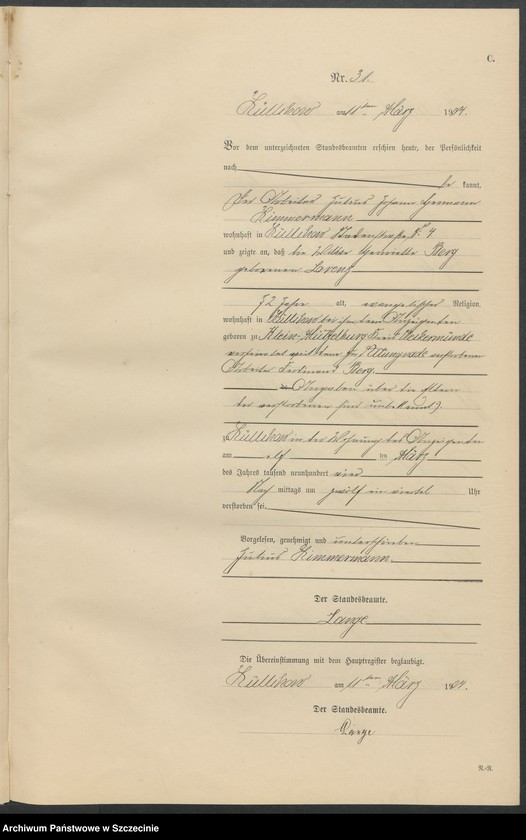 C.
Nr. 31.
Züllchow am 11ten März 1904.
Vor dem unterzeichneten Standesbeamten erschien heute, der Persönlichkeit
nach
be kannt,
der Arbeiter Julius Johann Hermann
Zimmermann
wohnhaft in Züllchow
und zeigte an, daß die Witwe Henriette Berg
geborenen Lorenz
72 Jahre alt, evangelischer Religion,
wohnhaft in Züllchow bei ihm dem Anzeigenden
geboren zu Klein-Mützelburg Kreis Ueckermünde
verheiratet mit dem zu verstorbenen
Arbeiter Ferdinand Berg.
Angaben über die Eltern
der verstorbenen sind unbekannt).
zu Züllchow in der Wohnung des Anzeigenden
am elf ten März
des Jahres tausend neunhundert vier
Nach mittags um zwölf ein viertel Uhr
verstorben sei.
Vorgelesen, genehmigt und unterschrieben
Julius Zimmermann
Der Standesbeamte.
Lange
Die Übereinstimmung mit dem Hauptregister beglaubigt.
Züllchow am 11ten März 1904.
Der Standesbeamte.
Lange
R.-R.
Archiwum Państwowe w Szczecinie